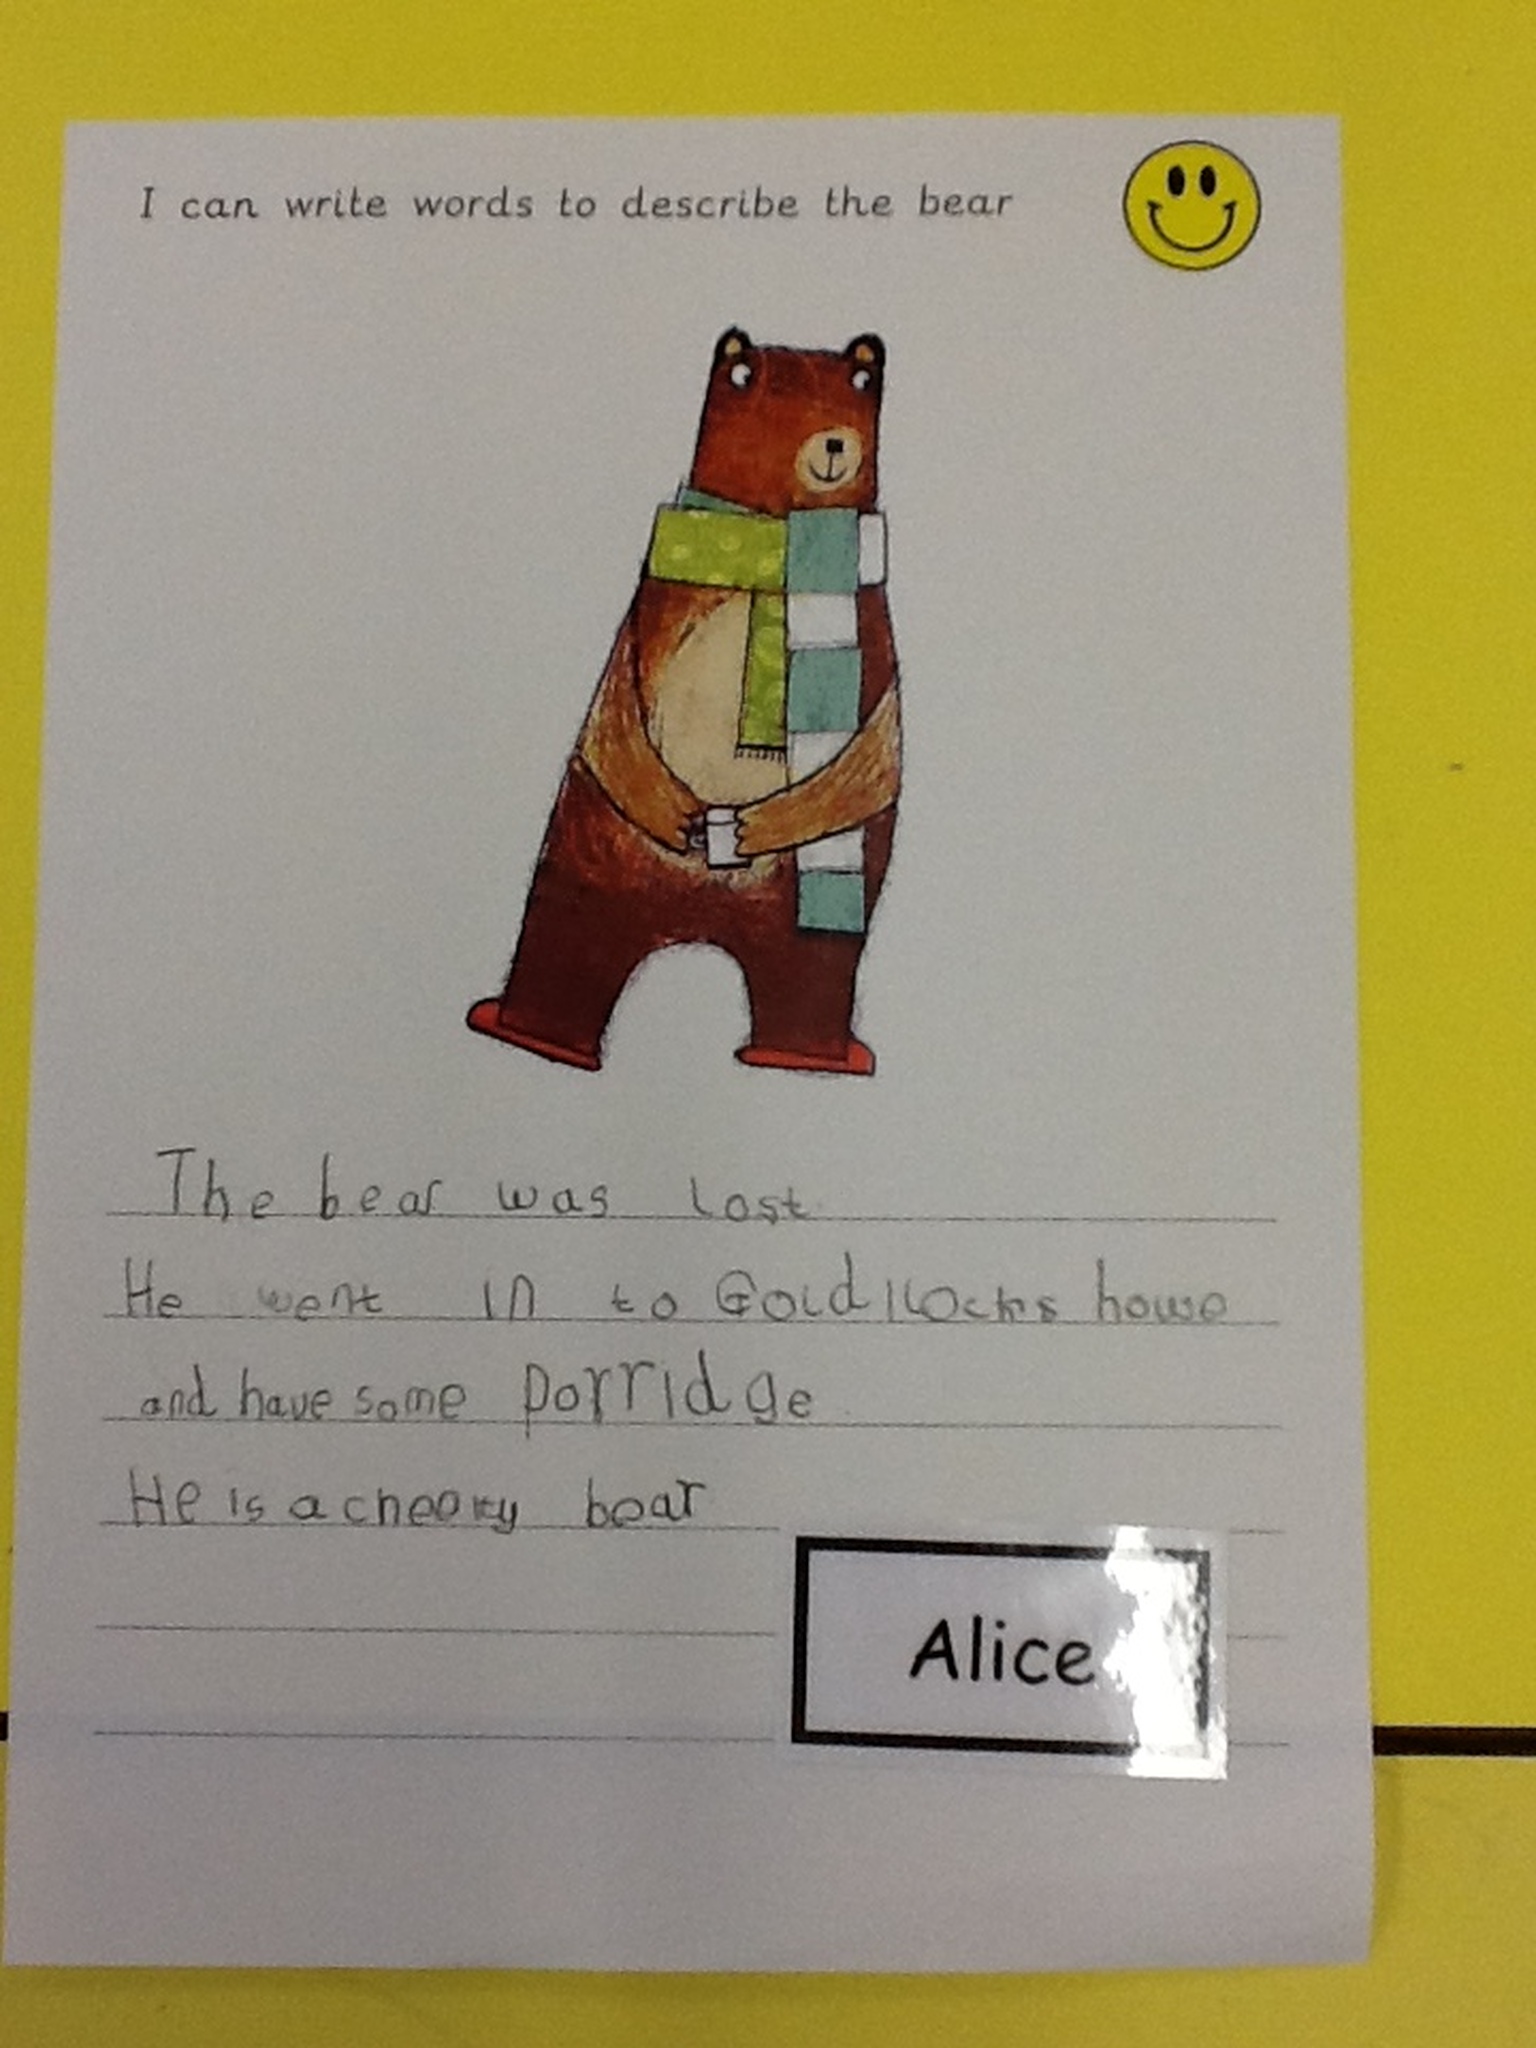 I can write words to describe the bear
The bear was lost
He went in to Goldilocks house
and have some porridge
He is a cheeky bear
Alice